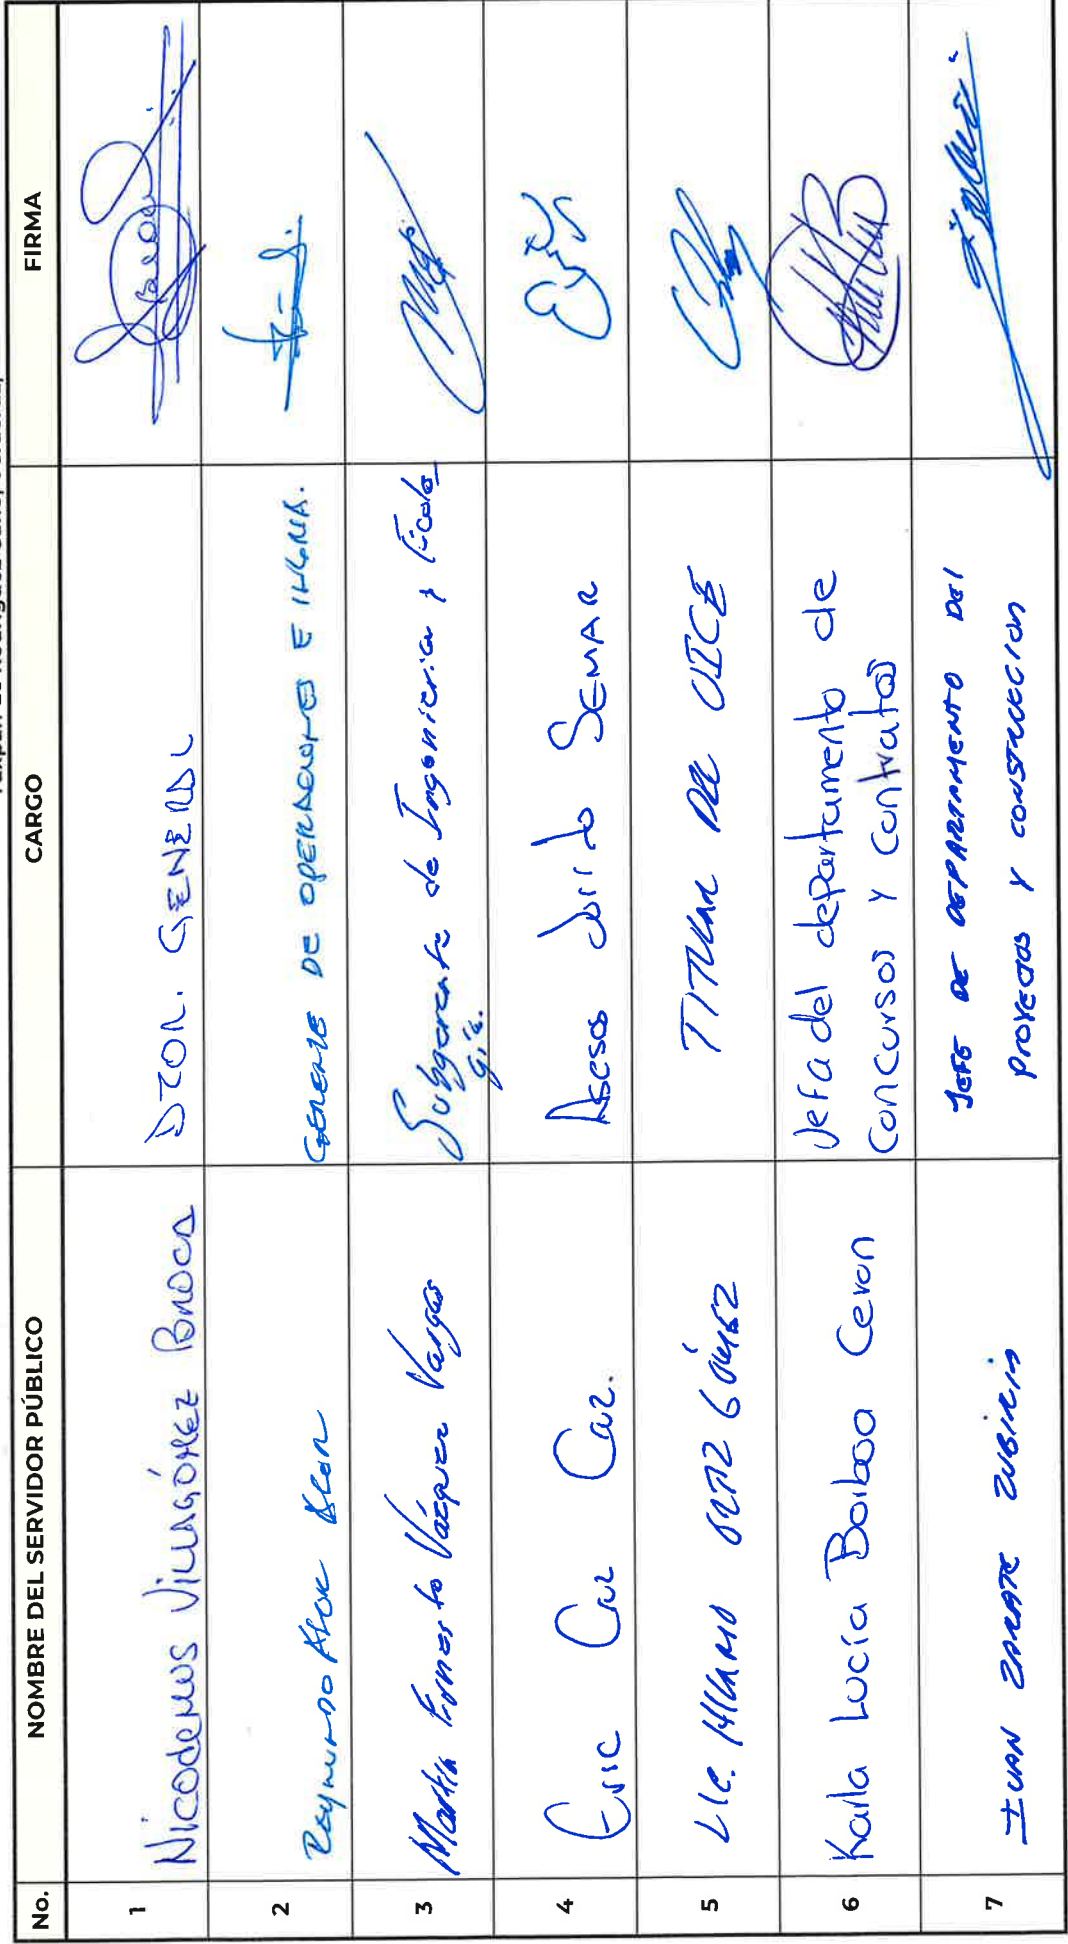 No. NOMBRE DEL SERVIDOR PÚBLICO CARGO FIRMA
1 Nicodemus Villagómez Broca DTOR. GENERAL
2 Raymundo Alor GERENTE DE OPERACIONES E INGRIA.
3 Martin Ernesto Vázquez Vargas Subgerente de Ingenieria y Ecolo
gía.
4 Eric Cruz Cruz. Asesor SEMAR
5 LIC. ORTIZ GÓMEZ TITULAR DEL OICE
6 Karla Lucía Barboa Ceron Jefa del departamento de
Concursos y contratos
7 IVAN ZARATE ZUBIRIA JEFE DE DEPARTAMENTO DEL
PROYECTOS Y CONSTRUCCION